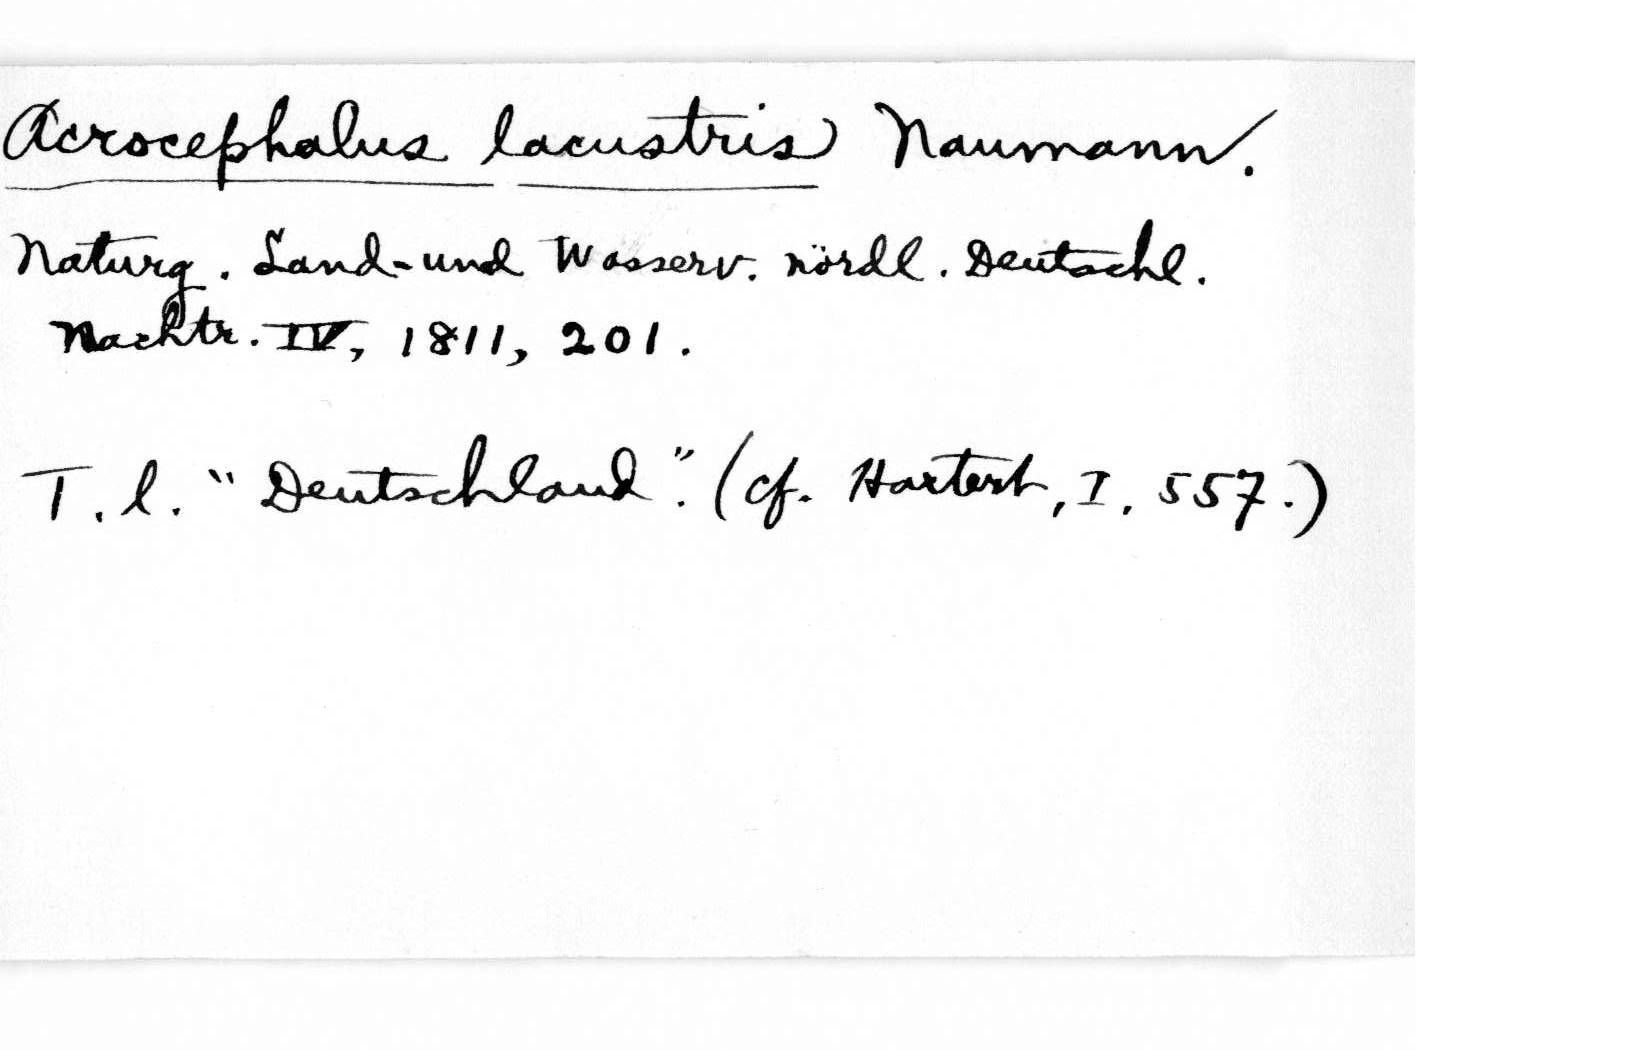 Acrocephalus lacustris Naumann.
Naturg. Land- und Wasserv. nördl. Deutschl.
Nachtr. IV, 1811, 201.
T. l. "Deutschland". (cf. Hartert, I, 557.)